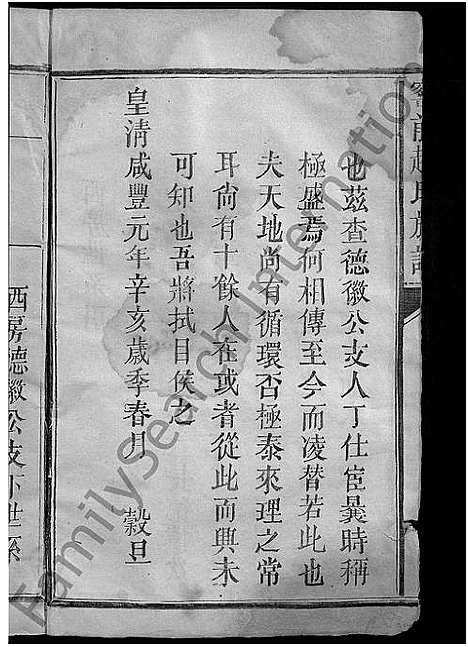 趙氏族譜
也茲查德徽公支人丁仕宦曩時稱
極盛焉何相傳至今而凌替若此也
夫天地尚有循環否極泰來理之常
耳尚有十餘人在或者從此而興未
可知也吾將拭目俟之
皇清咸豐元年辛亥歲季春月 穀旦
西房德徽公支下世系
FamilySearch International